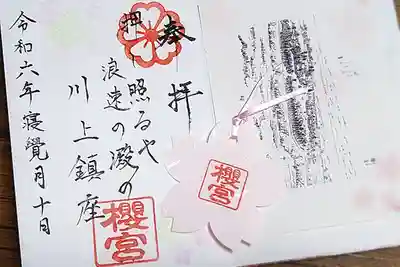 奉
拝
押照るや
浪速の澱の
川上鎮座
令和六年寝覺月十日
櫻宮
櫻宮